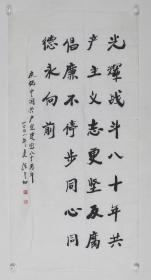 光辉战斗八十年共
产主义志更坚反腐
倡廉不停步同心同
德永向前
庆祝中国共产党建党八十周年
二〇〇一年